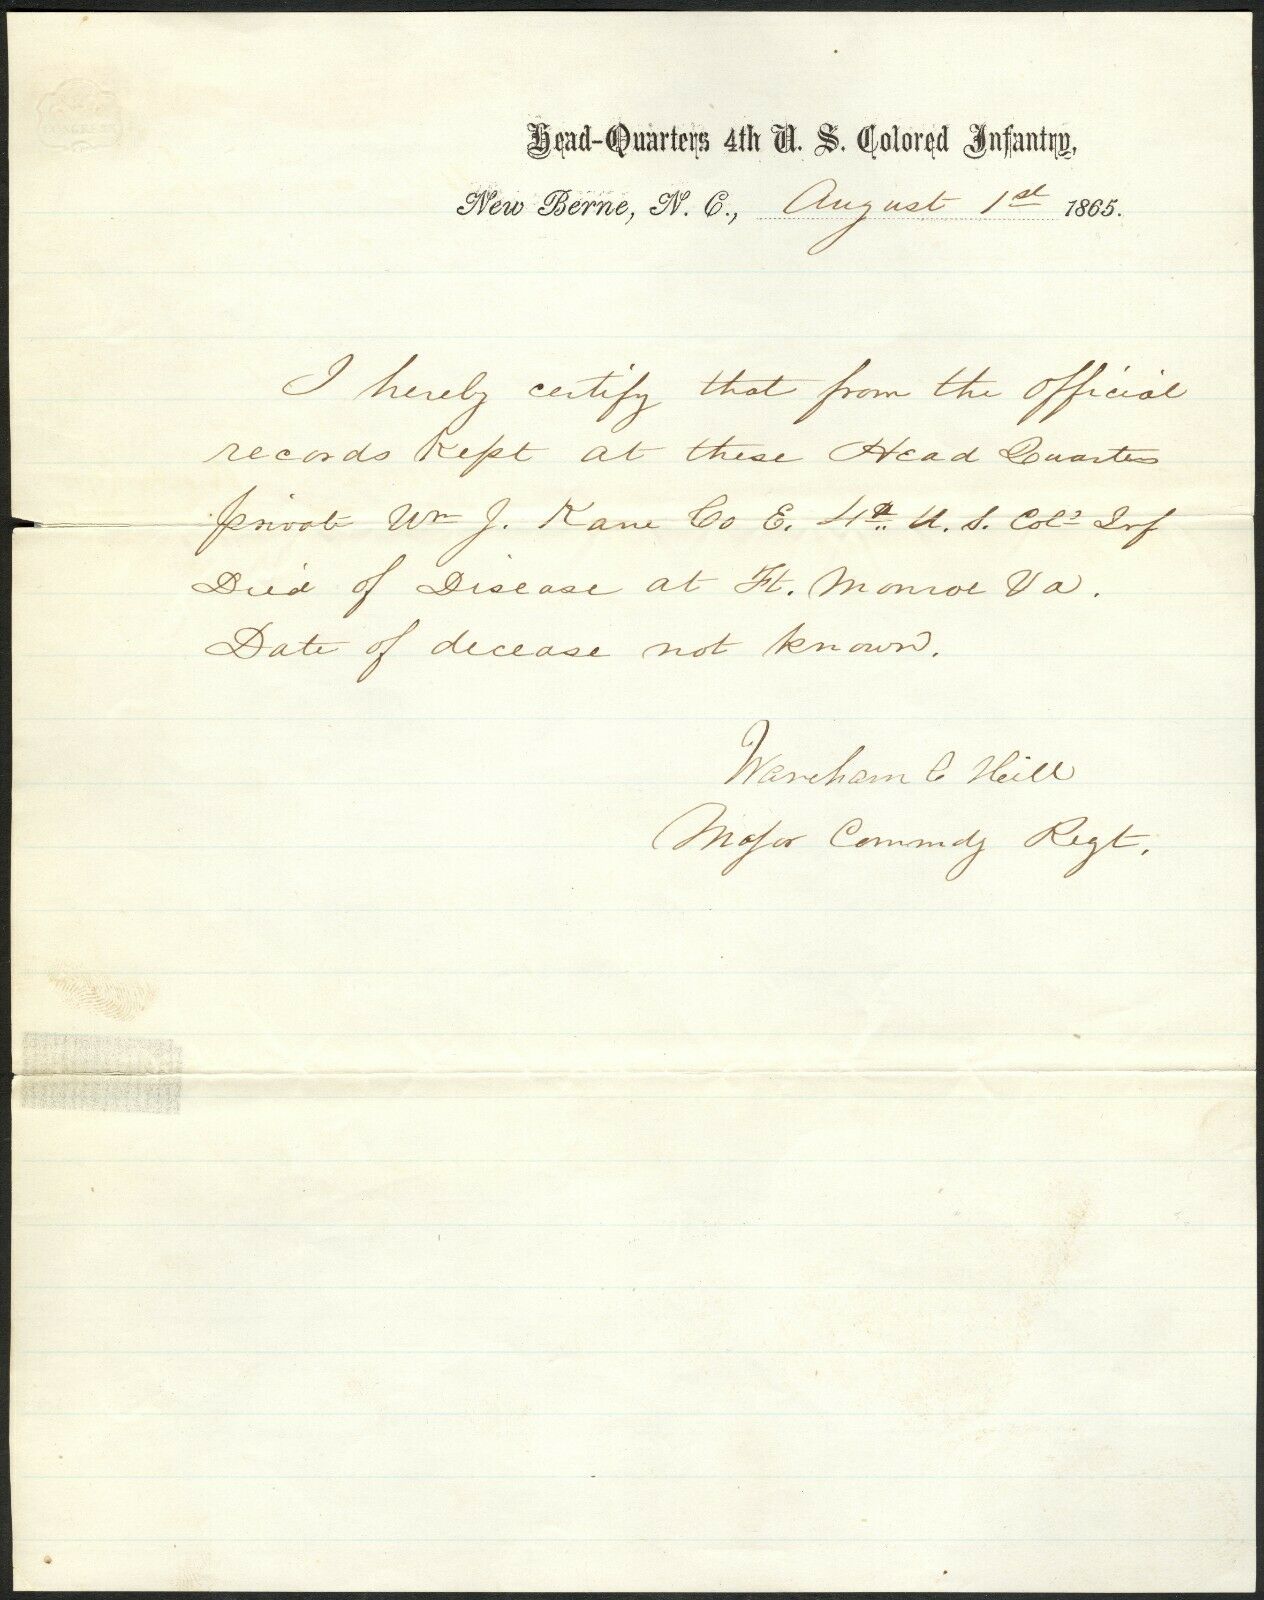 CONGRESS
Head-Quarters 4th U. S. Colored Infantry,
New Berne, N. C., August 1st 1865.
I hereby certify that from the official
records kept at these Head Quarters
private Wm J. Kane Co E. 4th U. S. Cold Inf
Died of Disease at Ft. Monroe Va.
Date of decease not known.
Wareham C Hill
Major Commdg Regt.